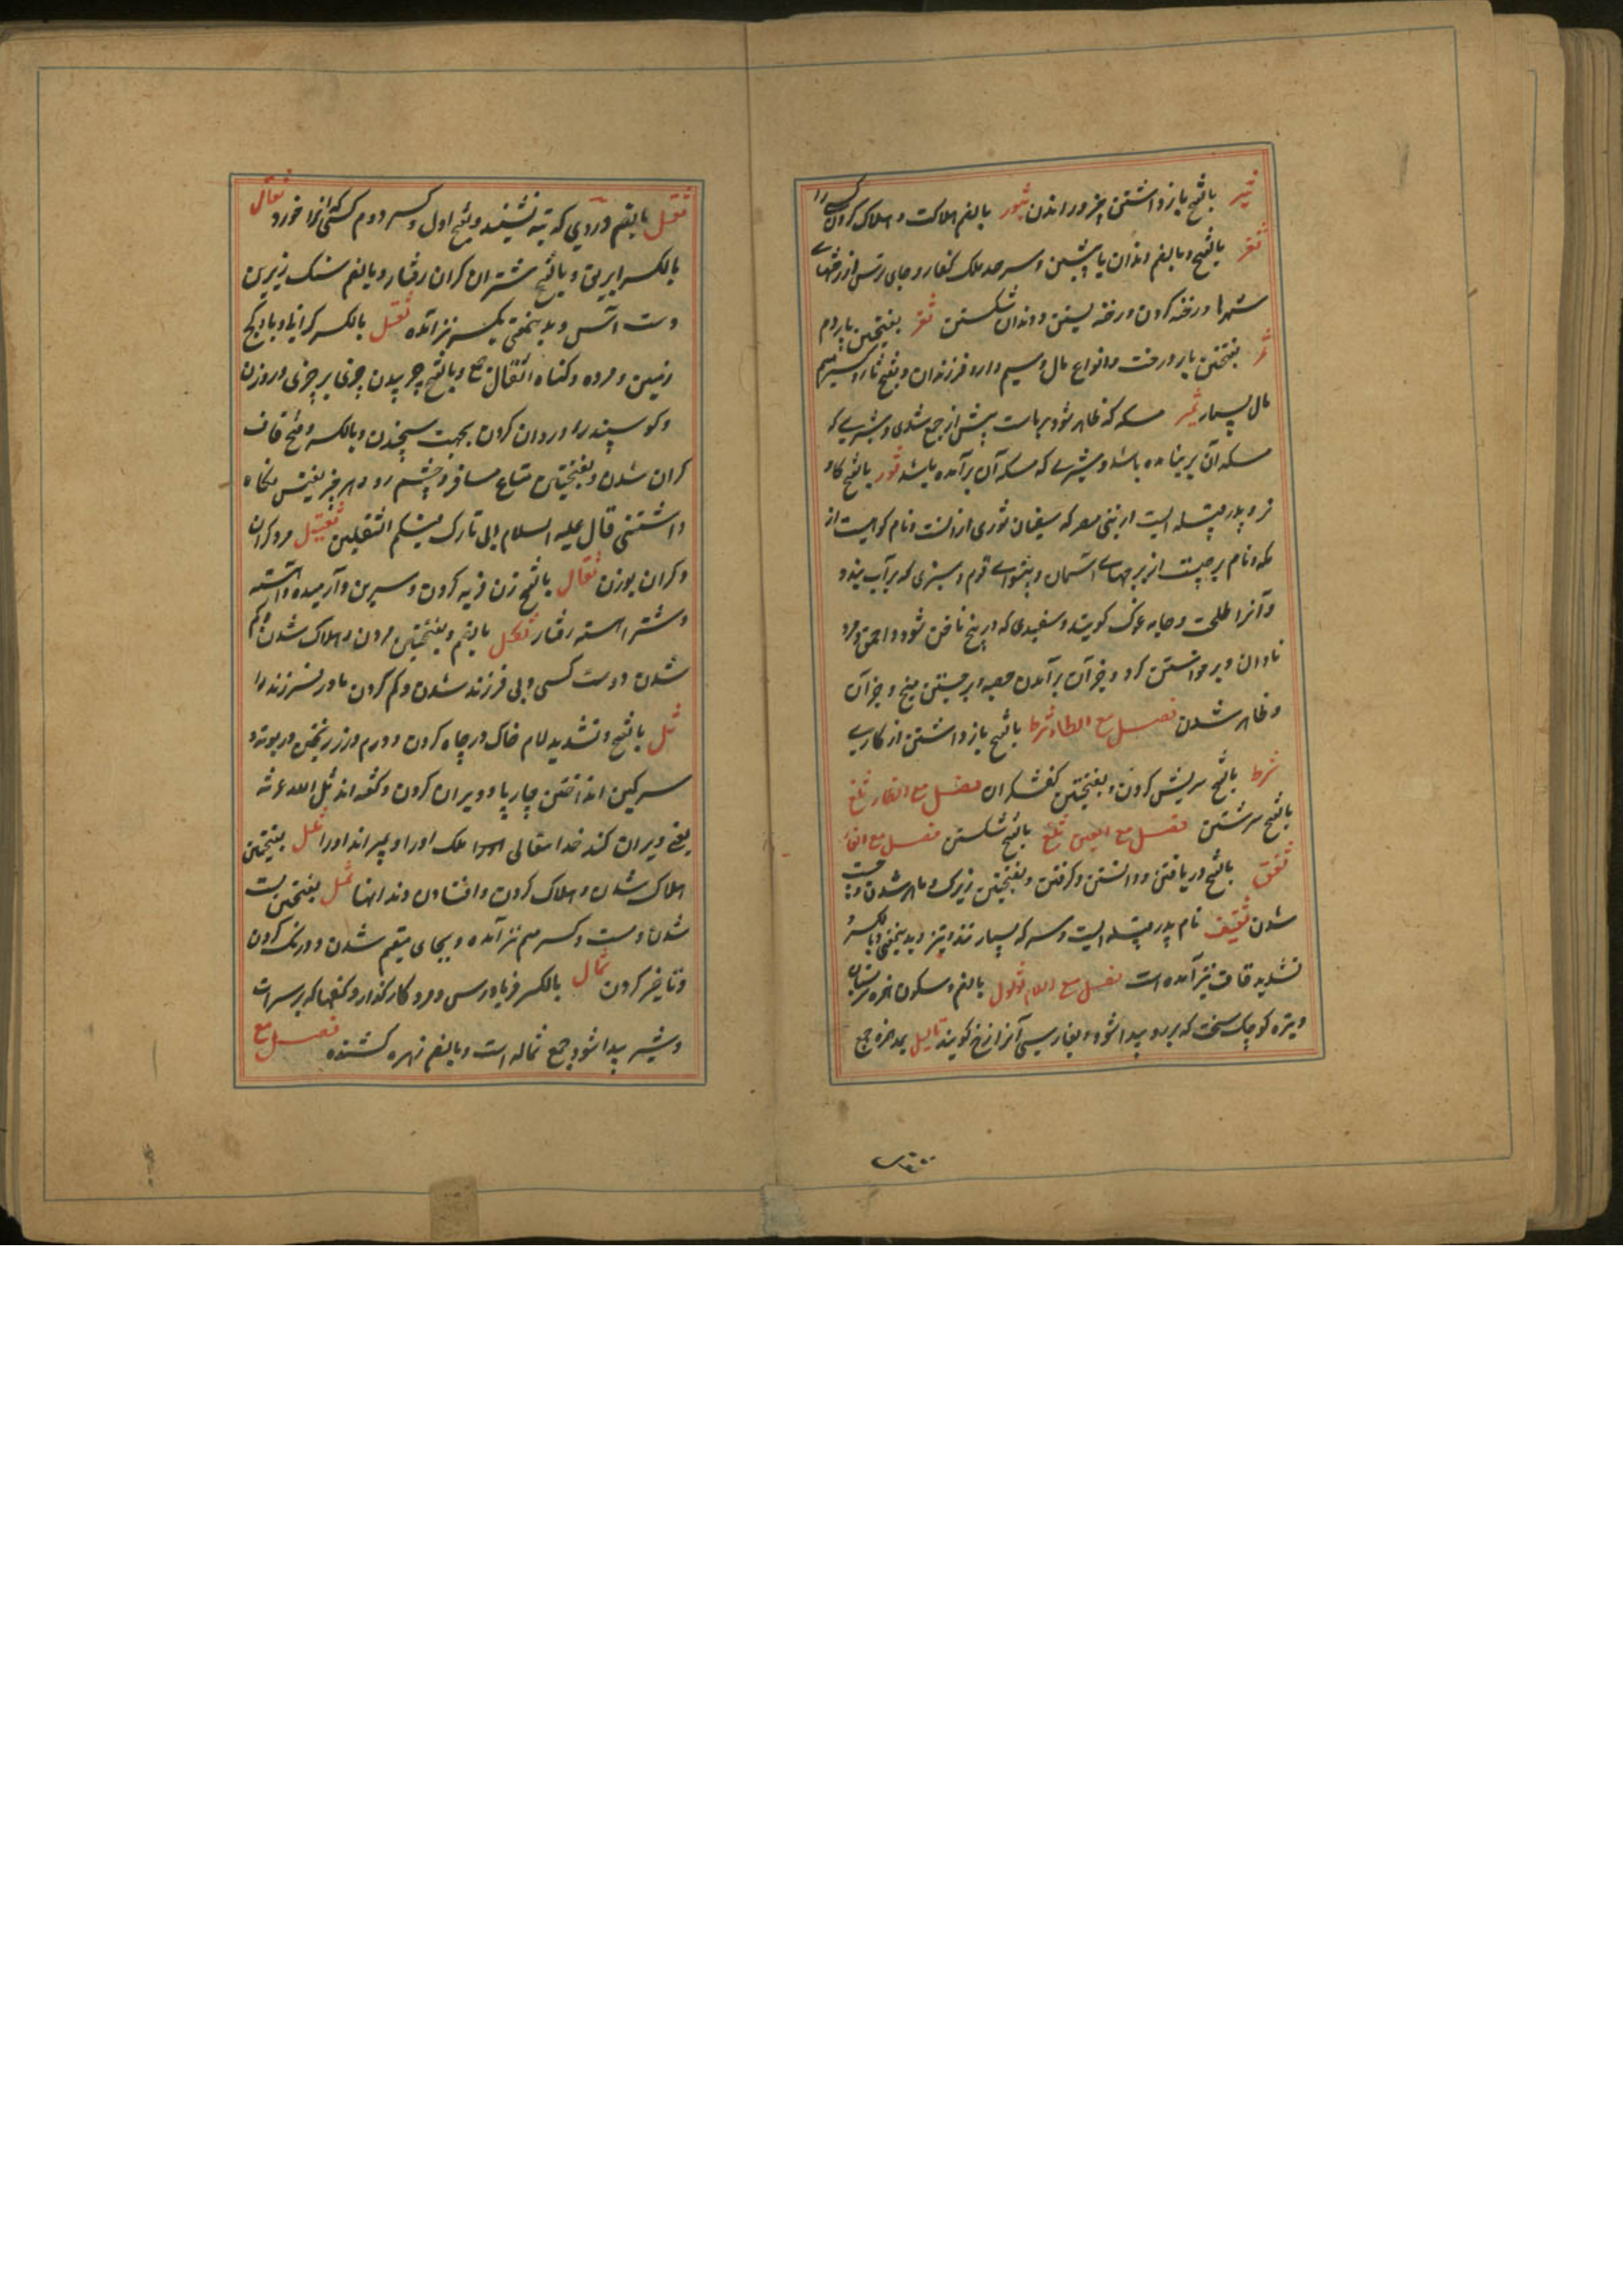 ثبر بالفتح بازداشتن و خوار راندن ثبور بالضم هلاکت و هلاک کردن کسی را
ثغر بالفتح و بالضم دندان پیشین و سرحد ملک کفار و جای ترس از رخنهای
شهرها و رخنه کردن و رخنه بستن و دندان شکستن ثفر بفتحتین پاردم
ثمر بفتحتین بار درخت و انواع مال و سیم و زر و فرزندان و بفتح ثا و کسر میم
مال بسیار ثمیر مسکه که ظاهر شود بر ماست پیش از جمع شدن و شیری که
مسکه آن بر نیامده باشد و شیری که مسکه آن برآمده باشد ثور بالفتح گاو
نر و پدر قبیله ایست از بنی مضر که سفیان ثوری از آنست و نام کوهیست از
مکه و نام برجیست از برجهای آسمان و پیشوای قوم و سبزی که بر آب بندد
و آنرا طحلب و جامه غوک گویند و سفیدی که در بیخ ناخن شود و احمق و مرد
نادان و برخواستن گرد و جز آن برآمدن حصبه و برجستن ملخ و جز آن
و ظاهر شدن فصل مع الطاء ثرط بالفتح بازداشتن از کاری
ثرط بالفتح سریش کردن و بفتحتین کفشگران فصل مع الغاء ثلغ
بالفتح سرشتن فصل مع العین ثلغ بالفتح شکستن فصل مع الفاء
ثقف بالفتح دریافتن و دانستن و گرفتن و بفتحتین زیرک و ماهر شدن و چست
شدن ثقیف نام پدر قبیله ایست و سرکه بسیار تند و تیز و بدینمعنی بالکسر و
تشدید قاف نیز آمده است فصل مع اللام ثؤلول بالضم و سکون همزه سر پستان
و بثره کوچک سخت که بر بدن پیدا شود و بفارسی آنرا ازخ گویند ثآلیل بمد همزه جمع
ثفل بالضم دردی که ته نشیند و بفتح اول و کسر دوم کسی که آنرا خورد ثفال
بالکسر ابریق و بالفتح شتران گران رفتار و بالضم سنگ زیرین
دست آس و بدینمعنی بکسر نیز آمده ثقل بالکسر گرانی و بار و گنج
زمین و مرده و گناه اثقال جمع و بالفتح چربیدن چیزی بر چیزی در وزن
و گوسپند را وردان کردن بجهت سنجیدن و بالکسر و فتح قاف
گران شدن و بفتحتین متاع مسافر و حشم و هر چیز نفیس نگاه
داشتنی قال علیه السلام انی تارک فیکم الثقلین ثقیل مرد گران
و گران بوزن ثقال بالفتح زن فربه کردن و سرین و آرمیده و آهسته
و شتر آهسته رفتار ثکل بالضم و بفتحتین مردن و هلاک شدن و گم
شدن دوست کسی و بی فرزند شدن و گم کردن مادر فرزند را
ثل بالفتح و تشدید لام خاک در چاه کردن و درم و زر ریختن در بوته و
سرگین انداختن چارپا و ویران کردن و گفته اند ثل الله عرشه
یعنی ویران کند خدا تعالی ملک او را و بمیراند او را ثلل بفتحتین
هلاک شدن و هلاک کردن و افتادن دندانها ثمل بفتحتین مست
شدن و مست و کسر میم نیز آمده و بجای مقیم شدن و درنگ کردن
و تاخیر کردن ثمال بالکسر فریادرس و مرد کارگذار و کفها که بر سر آب
و شیر پیدا شود جمع ثماله است و بالضم زهر کشنده فصل مع